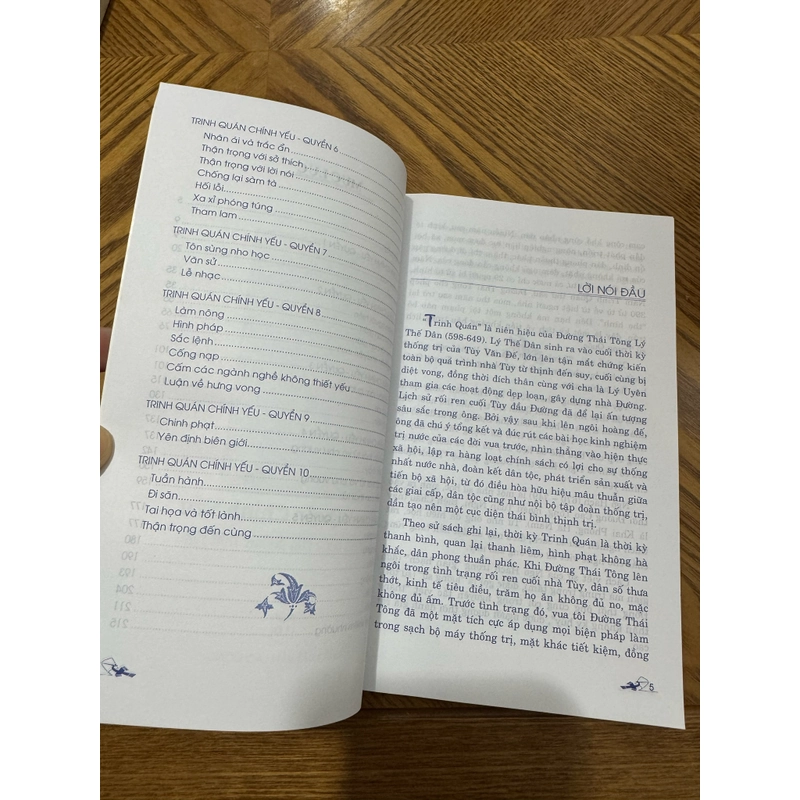 TRINH QUÁN CHÍNH YẾU - QUYỂN 6
Nhân ái và trắc ẩn
Thận trọng với sở thích
Thận trọng với lời nói
Chống lại sàm tà
Hối lỗi
Xa xỉ phóng túng
Tham lam
TRINH QUÁN CHÍNH YẾU - QUYỂN 7
Tôn sùng nho học
Văn sử
Lễ nhạc
TRINH QUÁN CHÍNH YẾU - QUYỂN 8
Làm nông
Hình pháp
Sắc lệnh
Cống nạp
Cấm các ngành nghề không thiết yếu
Luận về hưng vong
TRINH QUÁN CHÍNH YẾU - QUYỂN 9
Chinh phạt
Yên định biên giới
TRINH QUÁN CHÍNH YẾU - QUYỂN 10
Tuần hành
Đi săn
Tai họa và tốt lành
Thận trọng đến cùng
LỜI NÓI ĐẦU
"Trinh Quán" là niên hiệu của Đường Thái Tông Lý
Thế Dân (598-649). Lý Thế Dân sinh ra vào cuối thời kỳ
thống trị của Tùy Văn Đế, lớn lên tận mắt chứng kiến
toàn bộ quá trình nhà Tùy từ thịnh đến suy, cuối cùng bị
diệt vong, đồng thời đích thân cùng với cha là Lý Uyên
tham gia các hoạt động dẹp loạn, gây dựng nhà Đường.
Lịch sử rối ren cuối Tùy đầu Đường đã để lại ấn tượng
sâu sắc trong ông. Bởi vậy sau khi lên ngôi hoàng đế,
ông đã chú ý tổng kết và đúc rút các bài học kinh nghiệm
trị nước của các đời vua trước, nhìn thẳng vào hiện thực
xã hội, lập ra hàng loạt chính sách có lợi cho sự thống
nhất nước nhà, đoàn kết dân tộc, phát triển sản xuất và
tiến bộ xã hội, từ đó điều hòa hữu hiệu mâu thuẫn giữa
các giai cấp, dân tộc cũng như nội bộ tập đoàn thống trị,
dần tạo nên một cục diện thái bình thịnh trị.
Theo sử sách ghi lại, thời kỳ Trinh Quán là thời kỳ
thanh bình, quan lại thanh liêm, hình phạt không hà
khắc, dân phong thuần phác. Khi Đường Thái Tông lên
ngôi trong tình trạng rối ren cuối nhà Tùy, dân số thưa
thớt, kinh tế tiêu điều, trăm họ ăn không đủ no, mặc
không đủ ấm. Trước tình trạng đó, vua tôi Đường Thái
Tông đã một mặt tích cực áp dụng mọi biện pháp làm
trong sạch bộ máy thống trị, mặt khác tiết kiệm, đồng
5